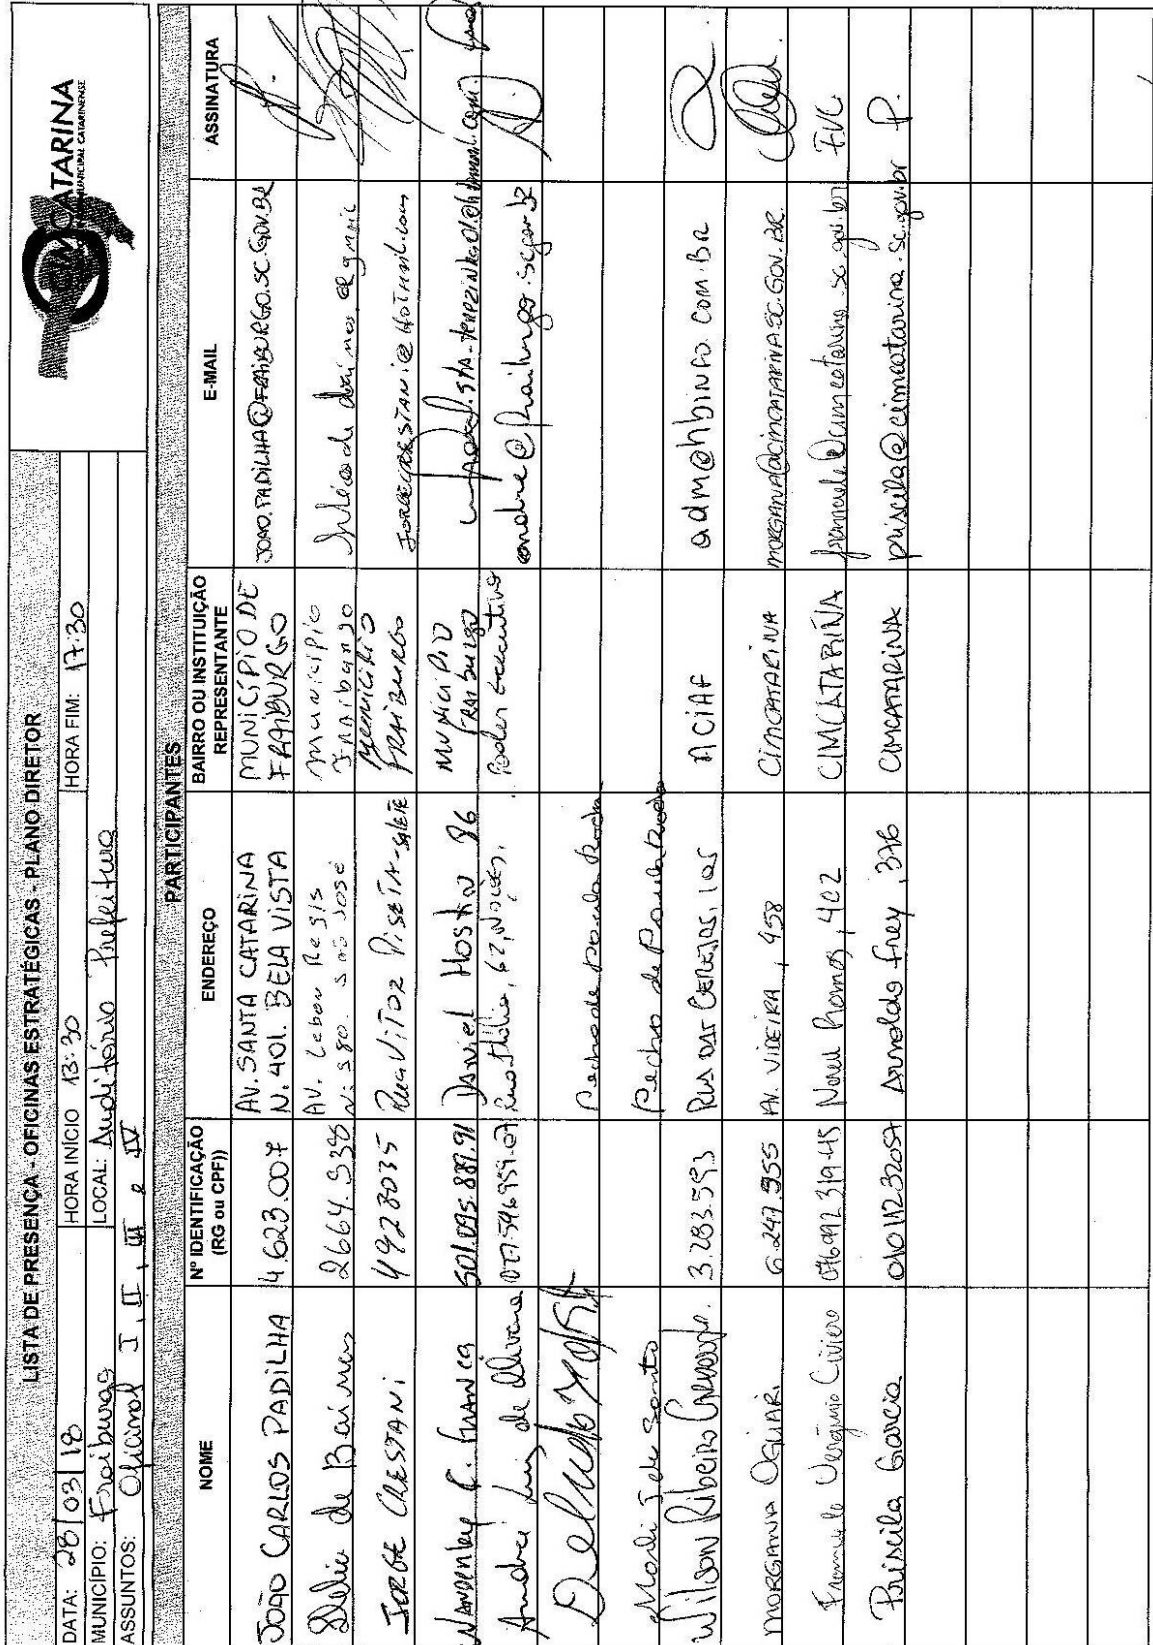 LISTA DE PRESENÇA - OFICINAS ESTRATÉGICAS - PLANO DIRETOR
CIMCATARINA
DATA: 28/03/18 HORA INÍCIO 13:30 HORA FIM: 17:30
MUNICÍPIO: Fraiburgo LOCAL: Auditório Prefeitura
ASSUNTOS: Oficinas I, II, III e IV
PARTICIPANTES
NOME Nº IDENTIFICAÇÃO (RG ou CPF)) ENDEREÇO BAIRRO OU INSTITUIÇÃO REPRESENTANTE E-MAIL ASSINATURA
JOÃO CARLOS PADILHA 4.623.007 AV. SANTA CATARINA N. 401. BELA VISTA MUNICÍPIO DE FRAIBURGO JOAO.PADILHA@FRAIBURGO.SC.GOV.BR
de 2664.938 AV. Lebon Regis N: 380. são José município Fraiburgo
JORGE CRESTANI 4928035 Rua VITOR PISETTA - SALETE Município FRAIBURGO JORGECRESTANI@HOTMAIL.COM
501.095.889.91 Daniel Hostin 86 MUNICIPIO FRAIBURGO
André Luiz de Oliveira 62, Nações, Poder Executivo andre@fraiburgo.sc.gov.br
Pedro de Paula Rocha
Marli J de Santos Pedro de Paula Rocha
Wilson Ribeiro Carvalho. 3.283.593 RUA DAS CEREJAS, 105 ACIAF adm@hbinfo.com.br
MORGANA OGLIARI 6.247.955 AV. VIDEIRA, 458 CIMCATARINA MORGANA@CIMCATARINA.SC.GOV.BR.
Civiero 076992319-45 Nereu Ramos, 402 CIMCATARINA FVC
Priscila Garcia 01011232057 Arnoldo Frey, 376 CIMCATARINA priscila@cimcatarina.sc.gov.br P.